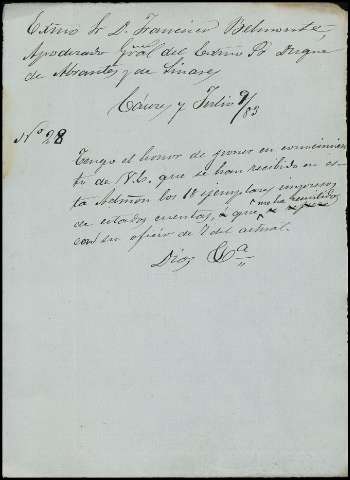 Exmo Sr D. Francisco Belmonte,
Apoderado Gral del Exmo Sr Duque
de Abrantes y de Linares
Cáceres y Julio 9/83
No 28
Tengo el honor de poner en conocimien
to de V.E. que se han recibido en es
ta Admon los 10 ejemplares impresos
de estados cuentas, que me ha remitido
con su oficio de 7 del actual.
Dios &a